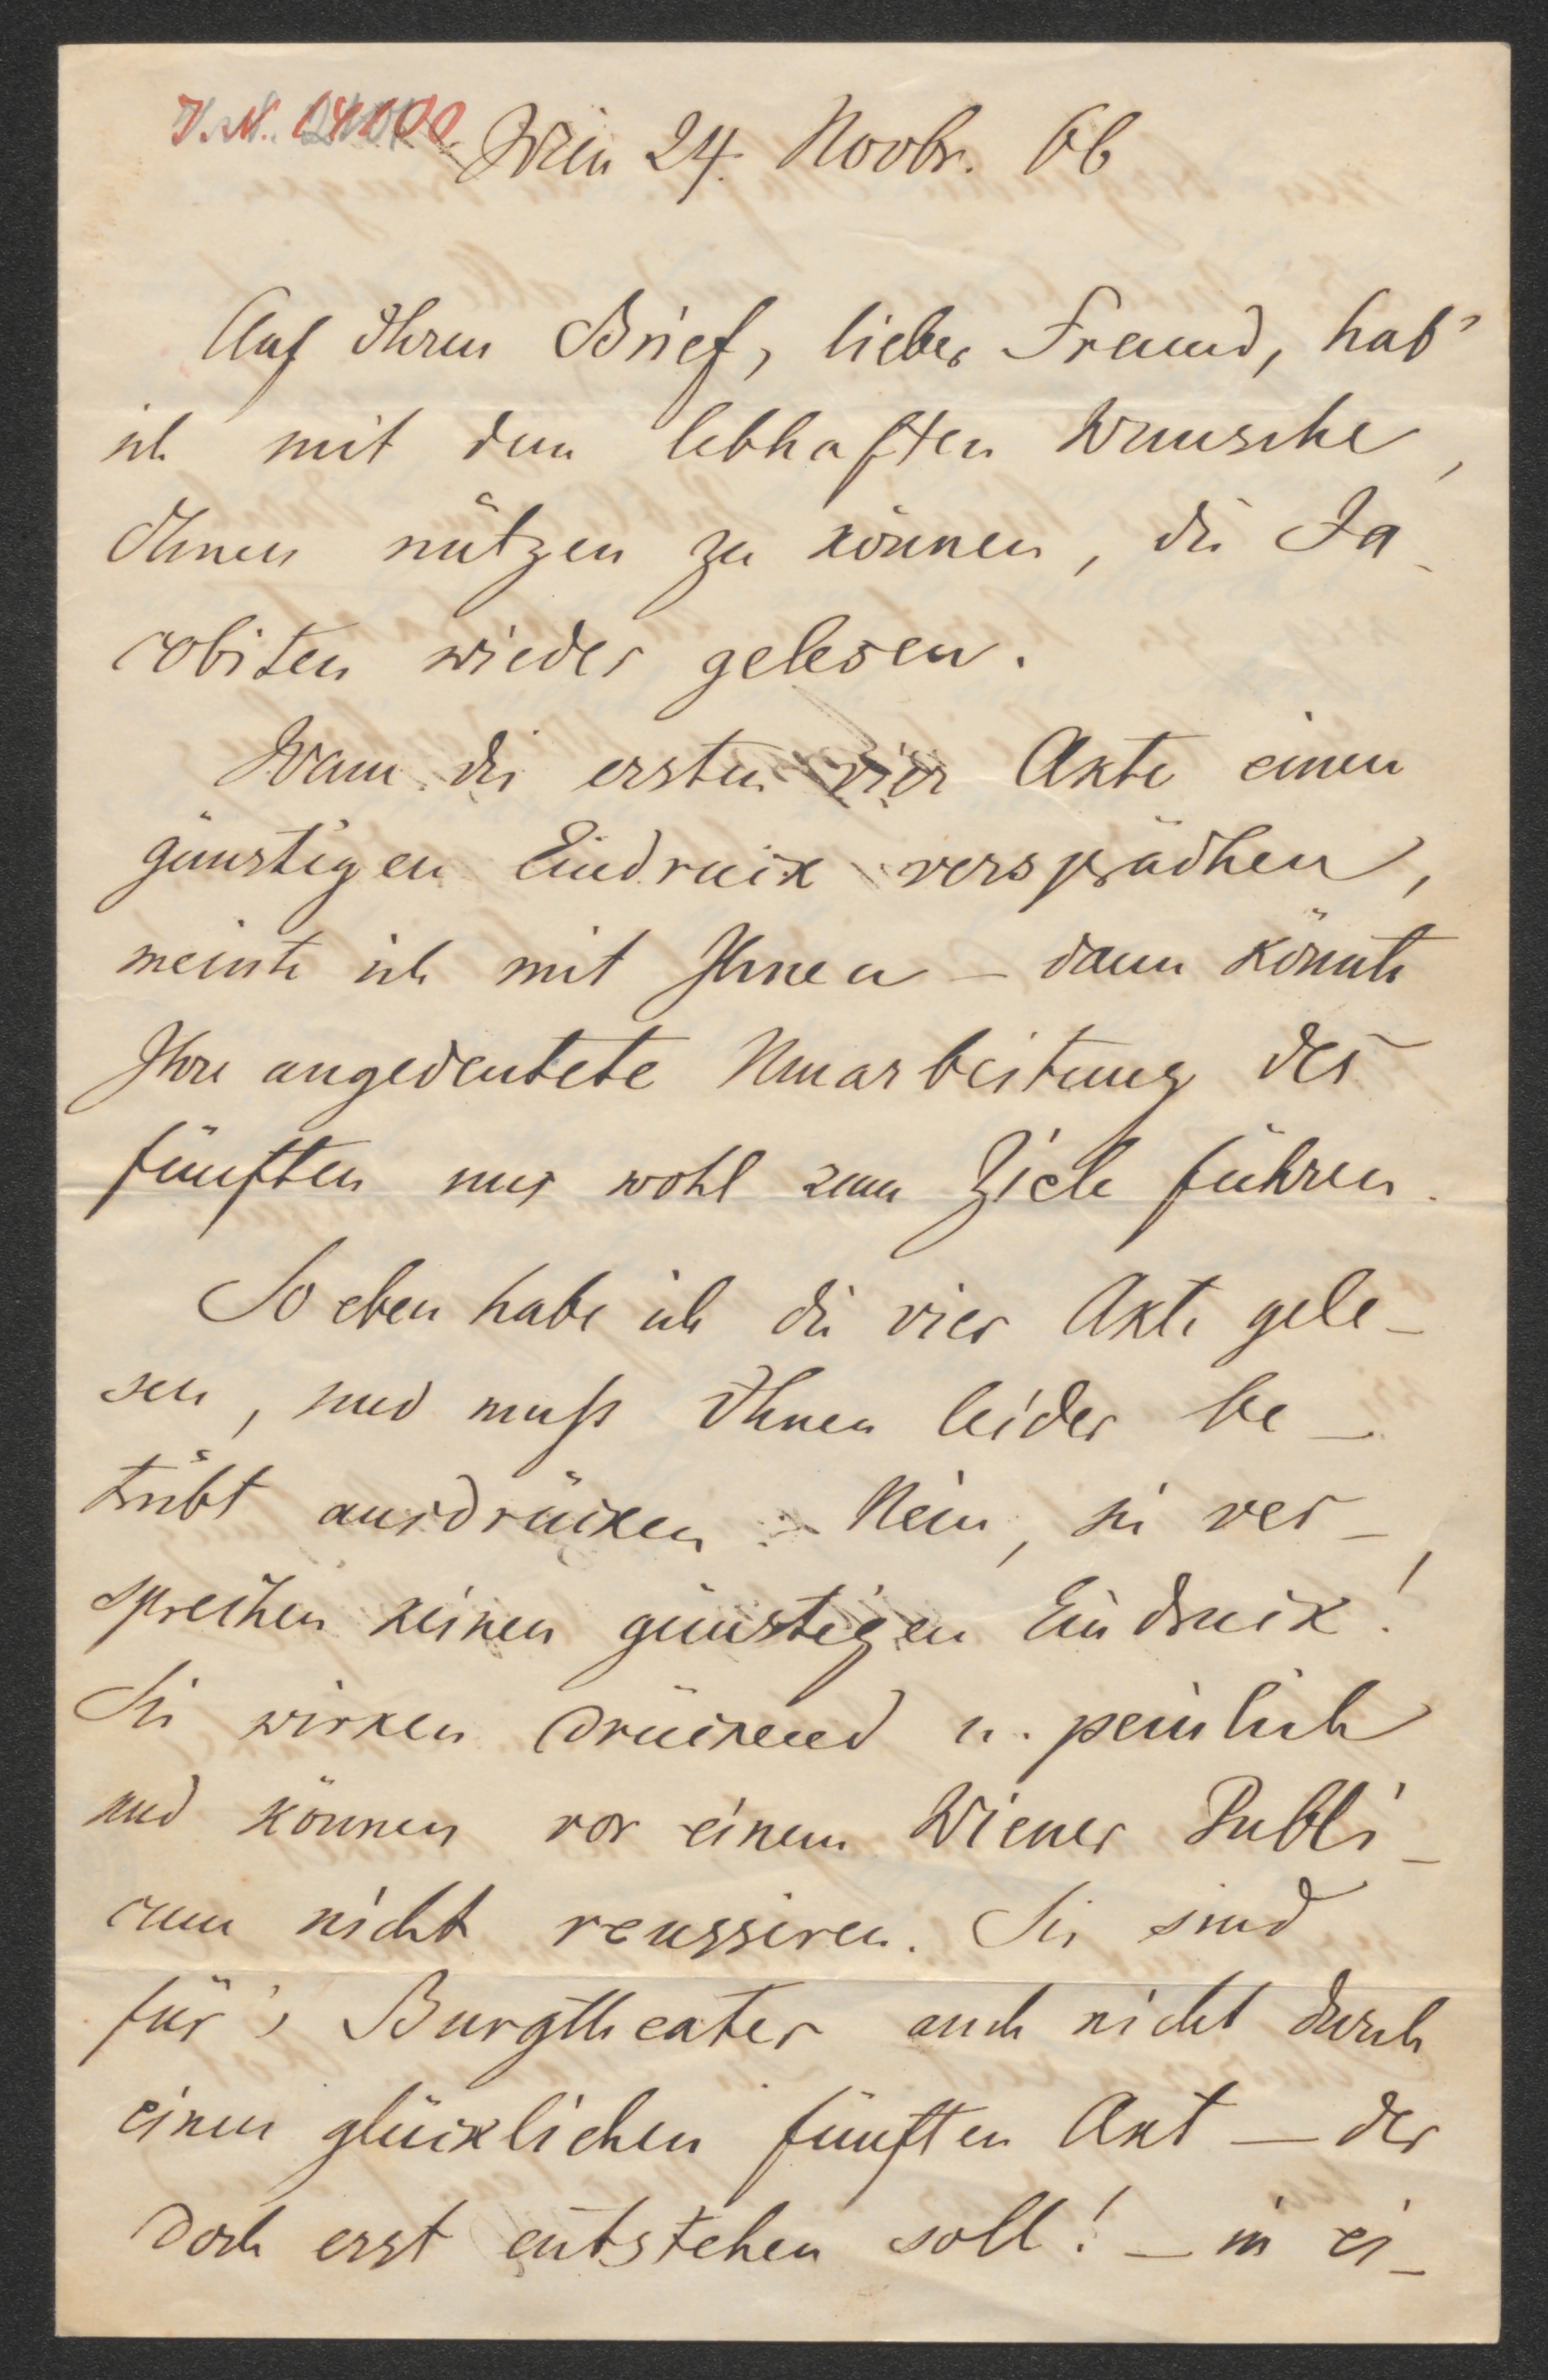 J. N.
Wien 24. Novbr. 66
Auf Ihren Brief, lieber Freund, hab'
ich mit dem lebhaften Wunsche,
Ihnen nützen zu können, die Ja-
cobiten wieder gelesen.
Wenn die ersten vier Akte einen
günstigen Eindruck verspächen,
meinte ich mit Ihnen – dann könnte
Ihre angedeutete Umarbeitung des
fünften nur wohl zum Ziele führen.
So eben habe ich die vier Akte gele-
sen, und muß Ihnen leider be-
trübt ausdrücken – Nein, sie ver-
sprechen keinen günstigen Eindruck!
Sie wirken drückend u. peinlich
und können vor einem Wiener Publi-
cum nicht reussiren. Sie sind
für's Burgtheater auch nicht durch
einen glücklichen fünften Akt – der
doch erst entstehen soll! – in ei-